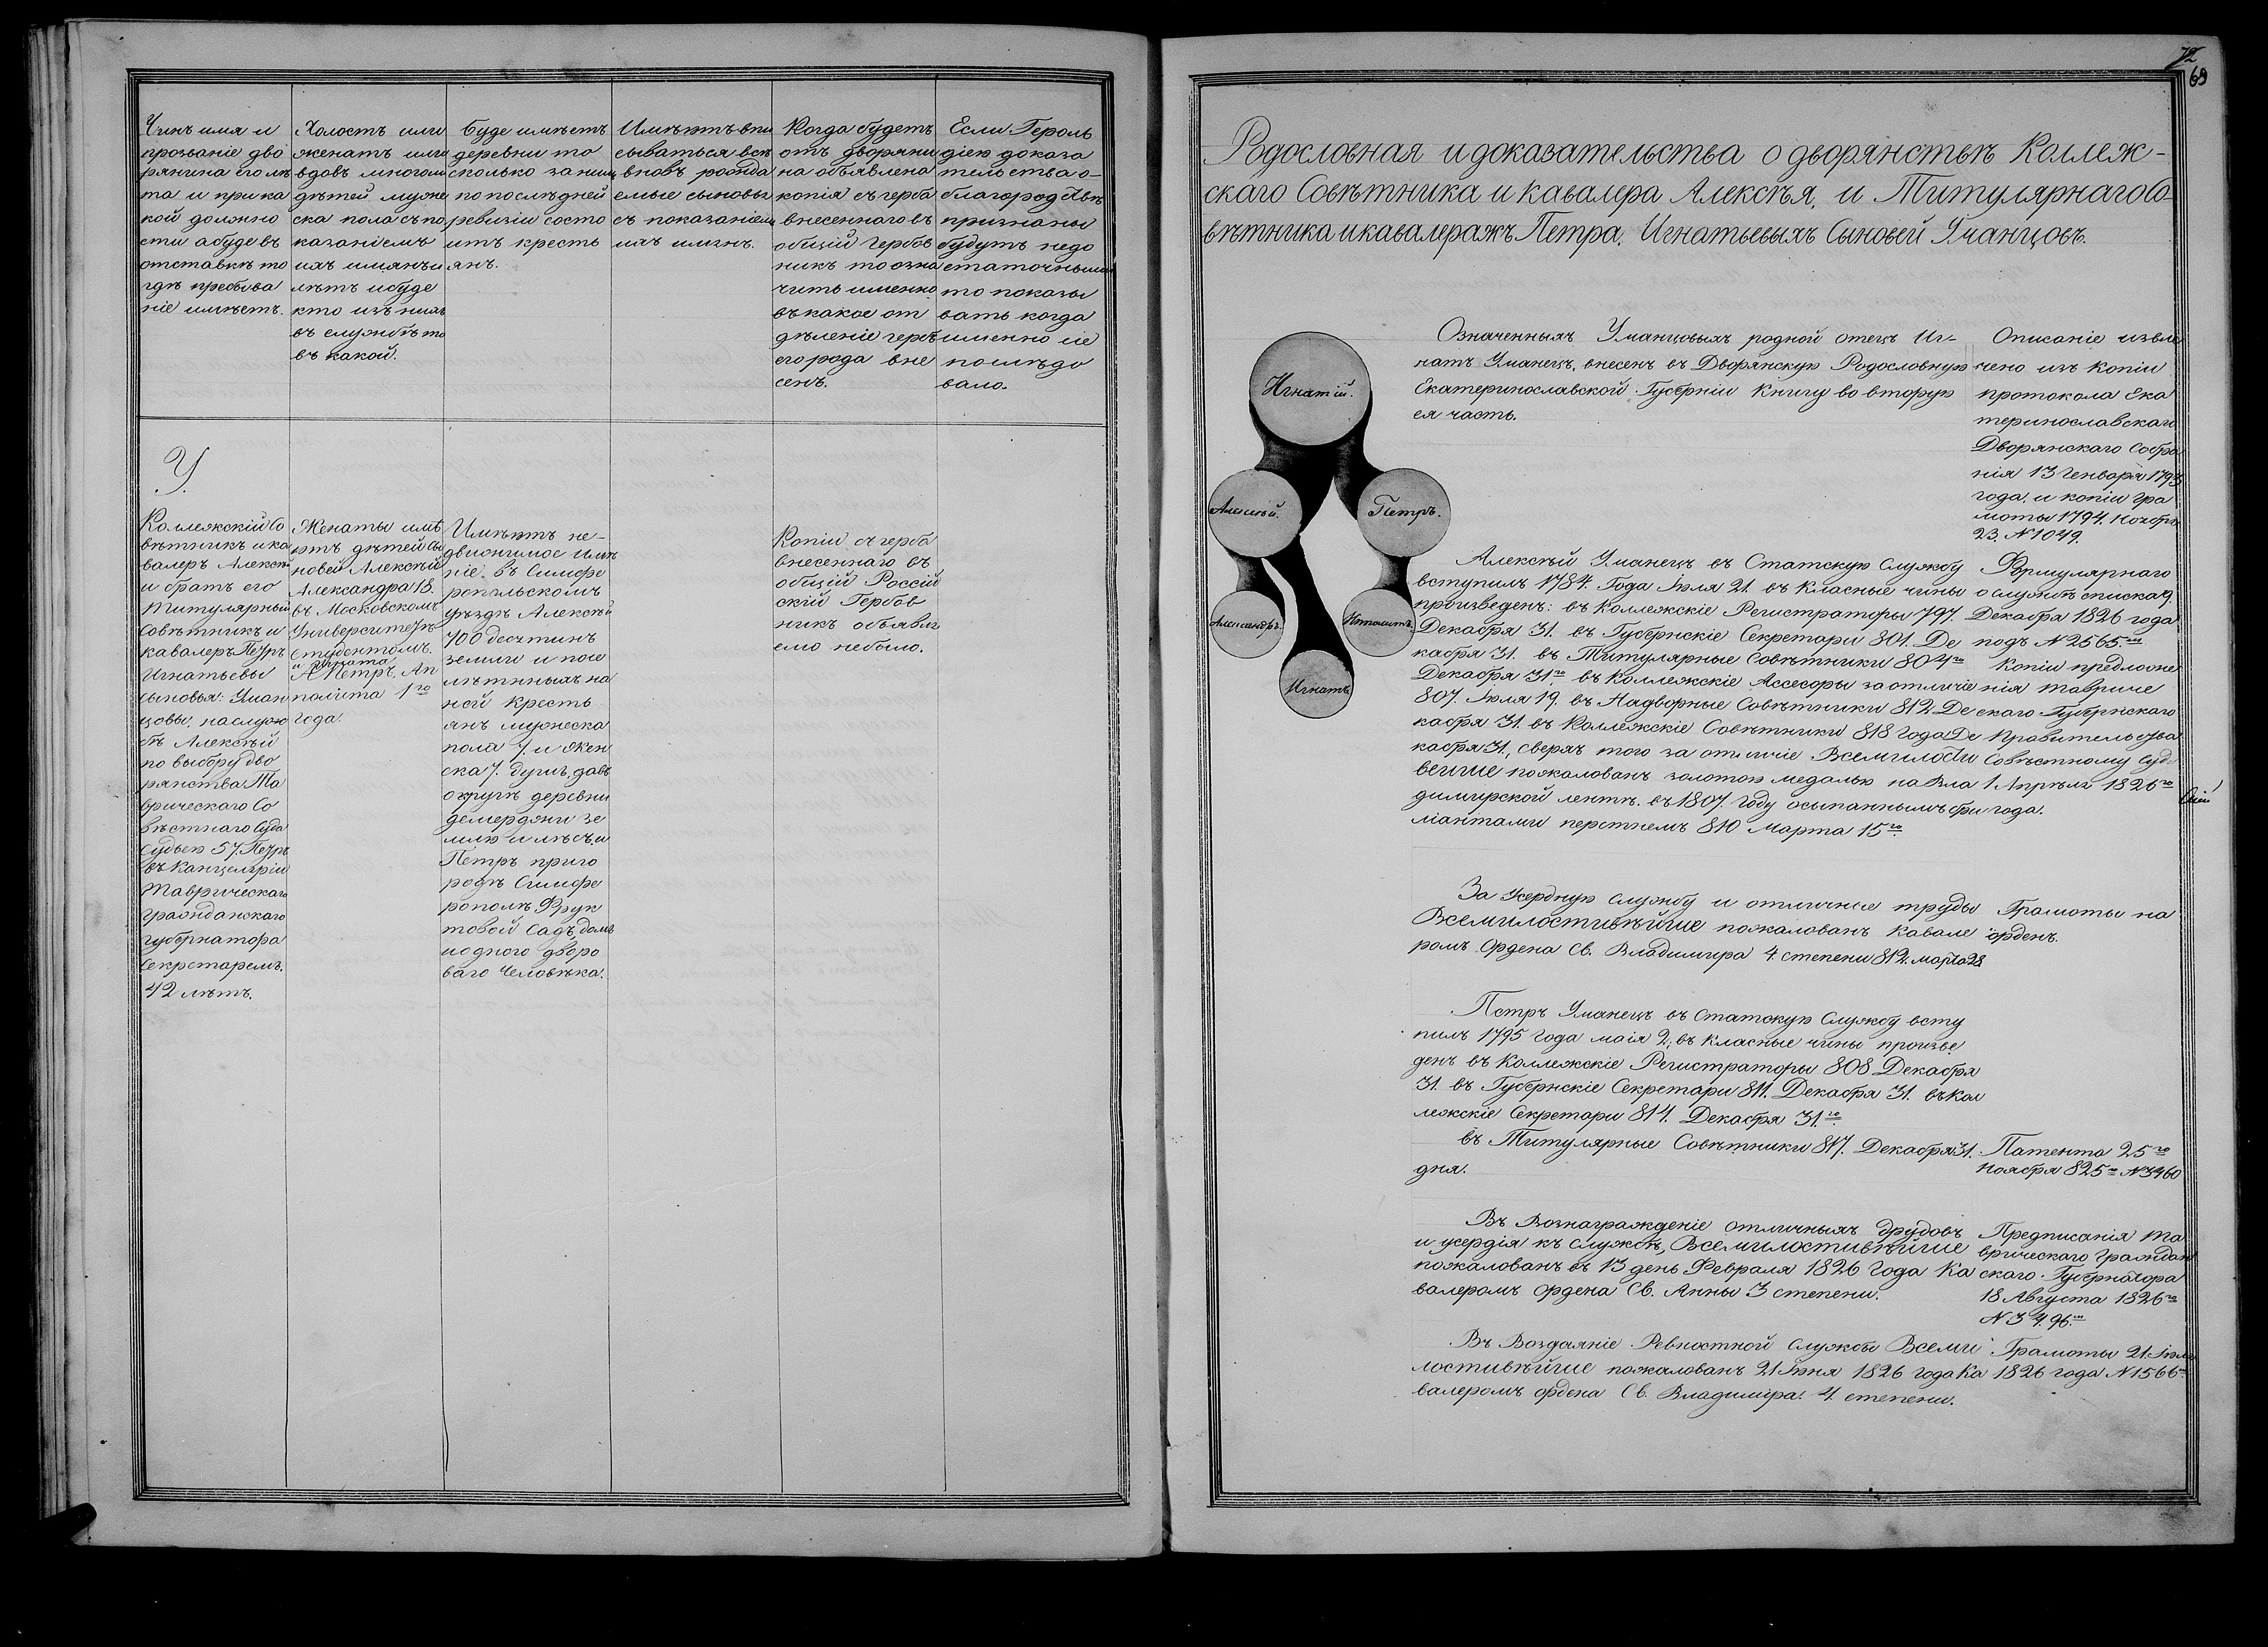 Чинъ имя и
прозваніе дво
рянина его лѣ
та и при ка
кой должно
сти а буде въ
отставкѣ то
гдѣ пребыва
ніе имѣетъ.
Холостъ или
женатъ или
вдовъ много ли
дѣтей муже
ска пола съ по
казаніемъ
ихъ имянъ и
лѣтъ и буде
кто изъ нихъ
въ службѣ то
въ какой.
Буде имѣетъ
деревни то
сколько за нимъ
по послѣдней
ревизіи состо
итъ кресть
янъ.
Имѣютъ впи
сываться всѣ
вновь рожда
емые сыновья
съ показаніемъ
ихъ имянъ.
Когда будетъ
отъ дворяни
на объявлена
копія съ герба
внесеннаго въ
общій Гербов
никъ то озна
чить именно
въ какое от
дѣленіе гербъ
его рода вне
сенъ.
Если Героль
діею доказа
тельства о
благородствѣ
признаны
будутъ недо
статочными
то показы
вать когда
именно сіе
послѣдо
вало.
У.
Коллежскій Со
вѣтникъ и ка
валеръ Алексѣй
и братъ его
Титулярный
Совѣтникъ и
кавалеръ Петръ
Игнатьевы
сыновья: Уман
цовы, на служ
бѣ Алексѣй
по выбору дво
рянства Та
врическаго Со
вѣстнаго Суда
Судьею 57. Петръ
въ Канцеляріи
Таврическаго
гражданскаго
губернатора
Секретаремъ.
42 лѣтъ.
Женаты имѣ
ютъ дѣтей Сы
новей Алексѣй
Александра 18.
въ Московскомъ
Университетѣ
Студентомъ.
и Игната
А Петръ, Ип
полита 1го
года.
Имѣютъ не-
движимое имѣ
ніе въ Симфе
ропольскомъ
уѣздѣ Алексѣй
700 десятинъ
земли и посе
лѣнныхъ на
ней кресть
янъ мужеска
пола 4 и жен
ска 7. душъ, да въ
округѣ деревни
демерджи зе
млю и лѣсъ, и
Петръ при го
родѣ Симфе
рополѣ Фрук
товой Садъ, домъ
и одного дворо
ваго Человѣка.
Копіи съ герба
внесеннаго въ
общій Россій
скій Гербов
никъ объявля
емо небыло.
72
69
Родословная и доказательства о дворянствѣ Коллеж-
скаго Совѣтника и Кавалера Алексѣя, и Титулярнаго Со-
вѣтника и кавалера жъ Петра, Игнатьевыхъ Сыновей Уманцовъ.
Игнатій.
Алексѣй.
Петръ.
Александръ.
Иполитъ.
Игнатъ
Означенныхъ Уманцовыхъ родной отецъ Иг-
натъ Уманецъ, внесенъ въ Дворянскую Родословную
Екатеринославской Губерніи Книгу во вторую
ея часть.
Описаніе извле
чено изъ Копіи
протокола Ека
теринославскаго
Дворянскаго Собра
нія 13 Генваря 1793
года, и копіи гра
моты 1794. Ноября
23. N 1049.
Алексѣй Уманецъ въ Статскую Службу
вступилъ 1784. Года Іюля 21. въ Класные чины
произведенъ: въ Коллежскіе Регистраторы 797.
Декабря 31. въ Губернскіе Секретари 801. Де
кабря 31. въ Титулярные Совѣтники 804го
Декабря 31го въ Коллежскіе Ассесоры за отличіе
807. Іюля 19. въ Надворные Совѣтники 812. Де
кабря 31. въ Коллежскіе Совѣтники 818 года Де
кабря 31., сверхъ того за отличіе Всемилости
вѣише пожалованъ золотою медалью на Вла
димирской лентѣ. въ 1807. году осыпаннымъ бри
ліантами перстнемъ 810 Марта 15го
Формулярнаго
о службѣ списка 9.
Декабря 1826 года
подъ N 2565.мъ
Копіи предложе
нія тавриче
скаго Губернскаго
Правительства
Совѣстному Суду
1 Апрѣля 1826го
года.
За Усердную Службу и отличные труды
Всемилостивѣйше пожалованъ Кавале
ромъ Ордена Св. Владимира 4. степени 812. марта 28
Грамоты на
орденъ.
Петръ Уманецъ въ Статскую Службу всту
пилъ 1795 Года маія 2., въ Класные чины произве
денъ въ Коллежскіе Регистраторы 808 Декабря
31. въ Губернскіе Секретари 811. Декабря 31. въ Кол
лежскіе Секретари 814. Декабря 31.го
въ Титулярные Совѣтники 817. Декабря 31.
дня.
Патента 25го
Ноября 825го N 3460
Въ Вознагражденіе отличныхъ трудовъ
и усердія къ службѣ, Всемилостивѣйше
пожалованъ въ 13 день Февраля 1826 Года Ка
валеромъ ордена Св. Анны 3 степени.
Предписанія та
врическаго Граждан
скаго Губернатора
18 Августа 1826го
N 3496.мъ
Въ Воздаяніе Ревностной Службы Всеми
лостивѣйше пожалованъ 21 Іюня 1826 года Ка
валеромъ ордена Св. Владимира 4. степени.
Грамоты 21. Іюня
1826 года N 1566